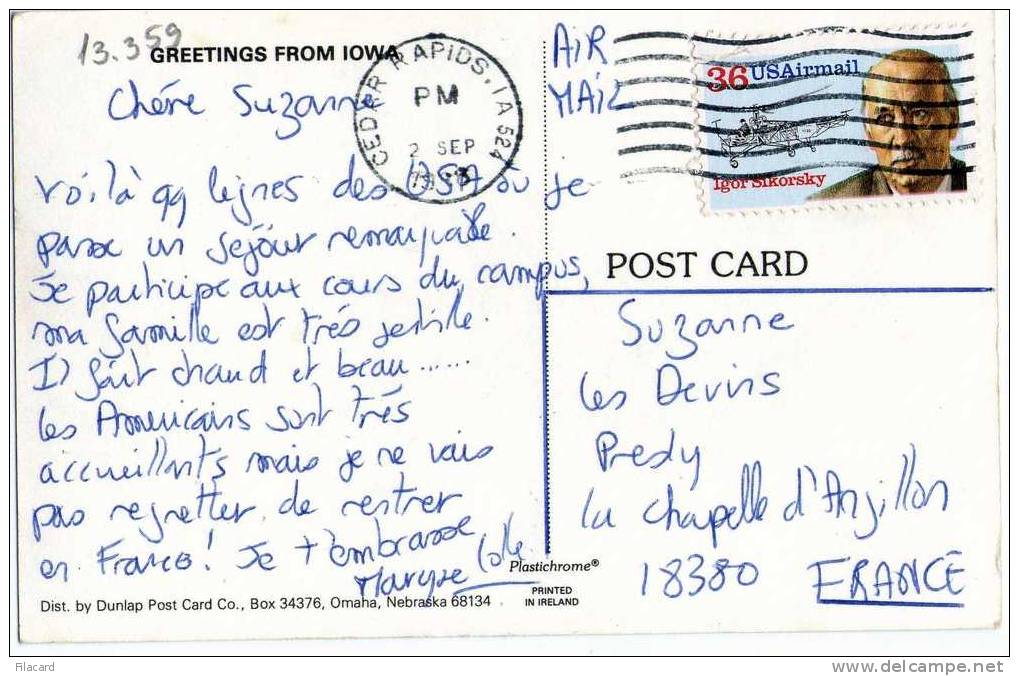 13.359
GREETINGS FROM IOWA
Chére Suzanne
CEDAR RAPIDS, IA 524
PM
2 SEP
AiR
MAiL
36 USAirmail
Igor Sikorsky
Voilà qq lignes des USA où je
passe un séjour remarquable.
Je participe aux cours du campus,
ma famille est très gentille.
Il fait chaud et beau......
Les Américains sont très
accueillants mais je ne vais
pas regretter de rentrer
en France! Je t'embrasse
Maryse
POST CARD
Suzanne
Les Devins
Presly
La Chapelle d'Angillon
18380 FRANCE
Plastichrome®
PRINTED
IN IRELAND
Dist. by Dunlap Post Card Co., Box 34376, Omaha, Nebraska 68134
Filacard
www.delcampe.net